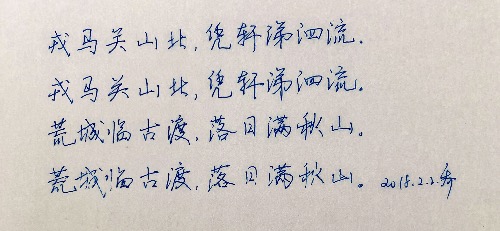 戎马关山北，凭轩涕泗流.
戎马关山北，凭轩涕泗流。
荒城临古渡，落日满秋山。
荒城临古渡，落日满秋山。2018.2.2.